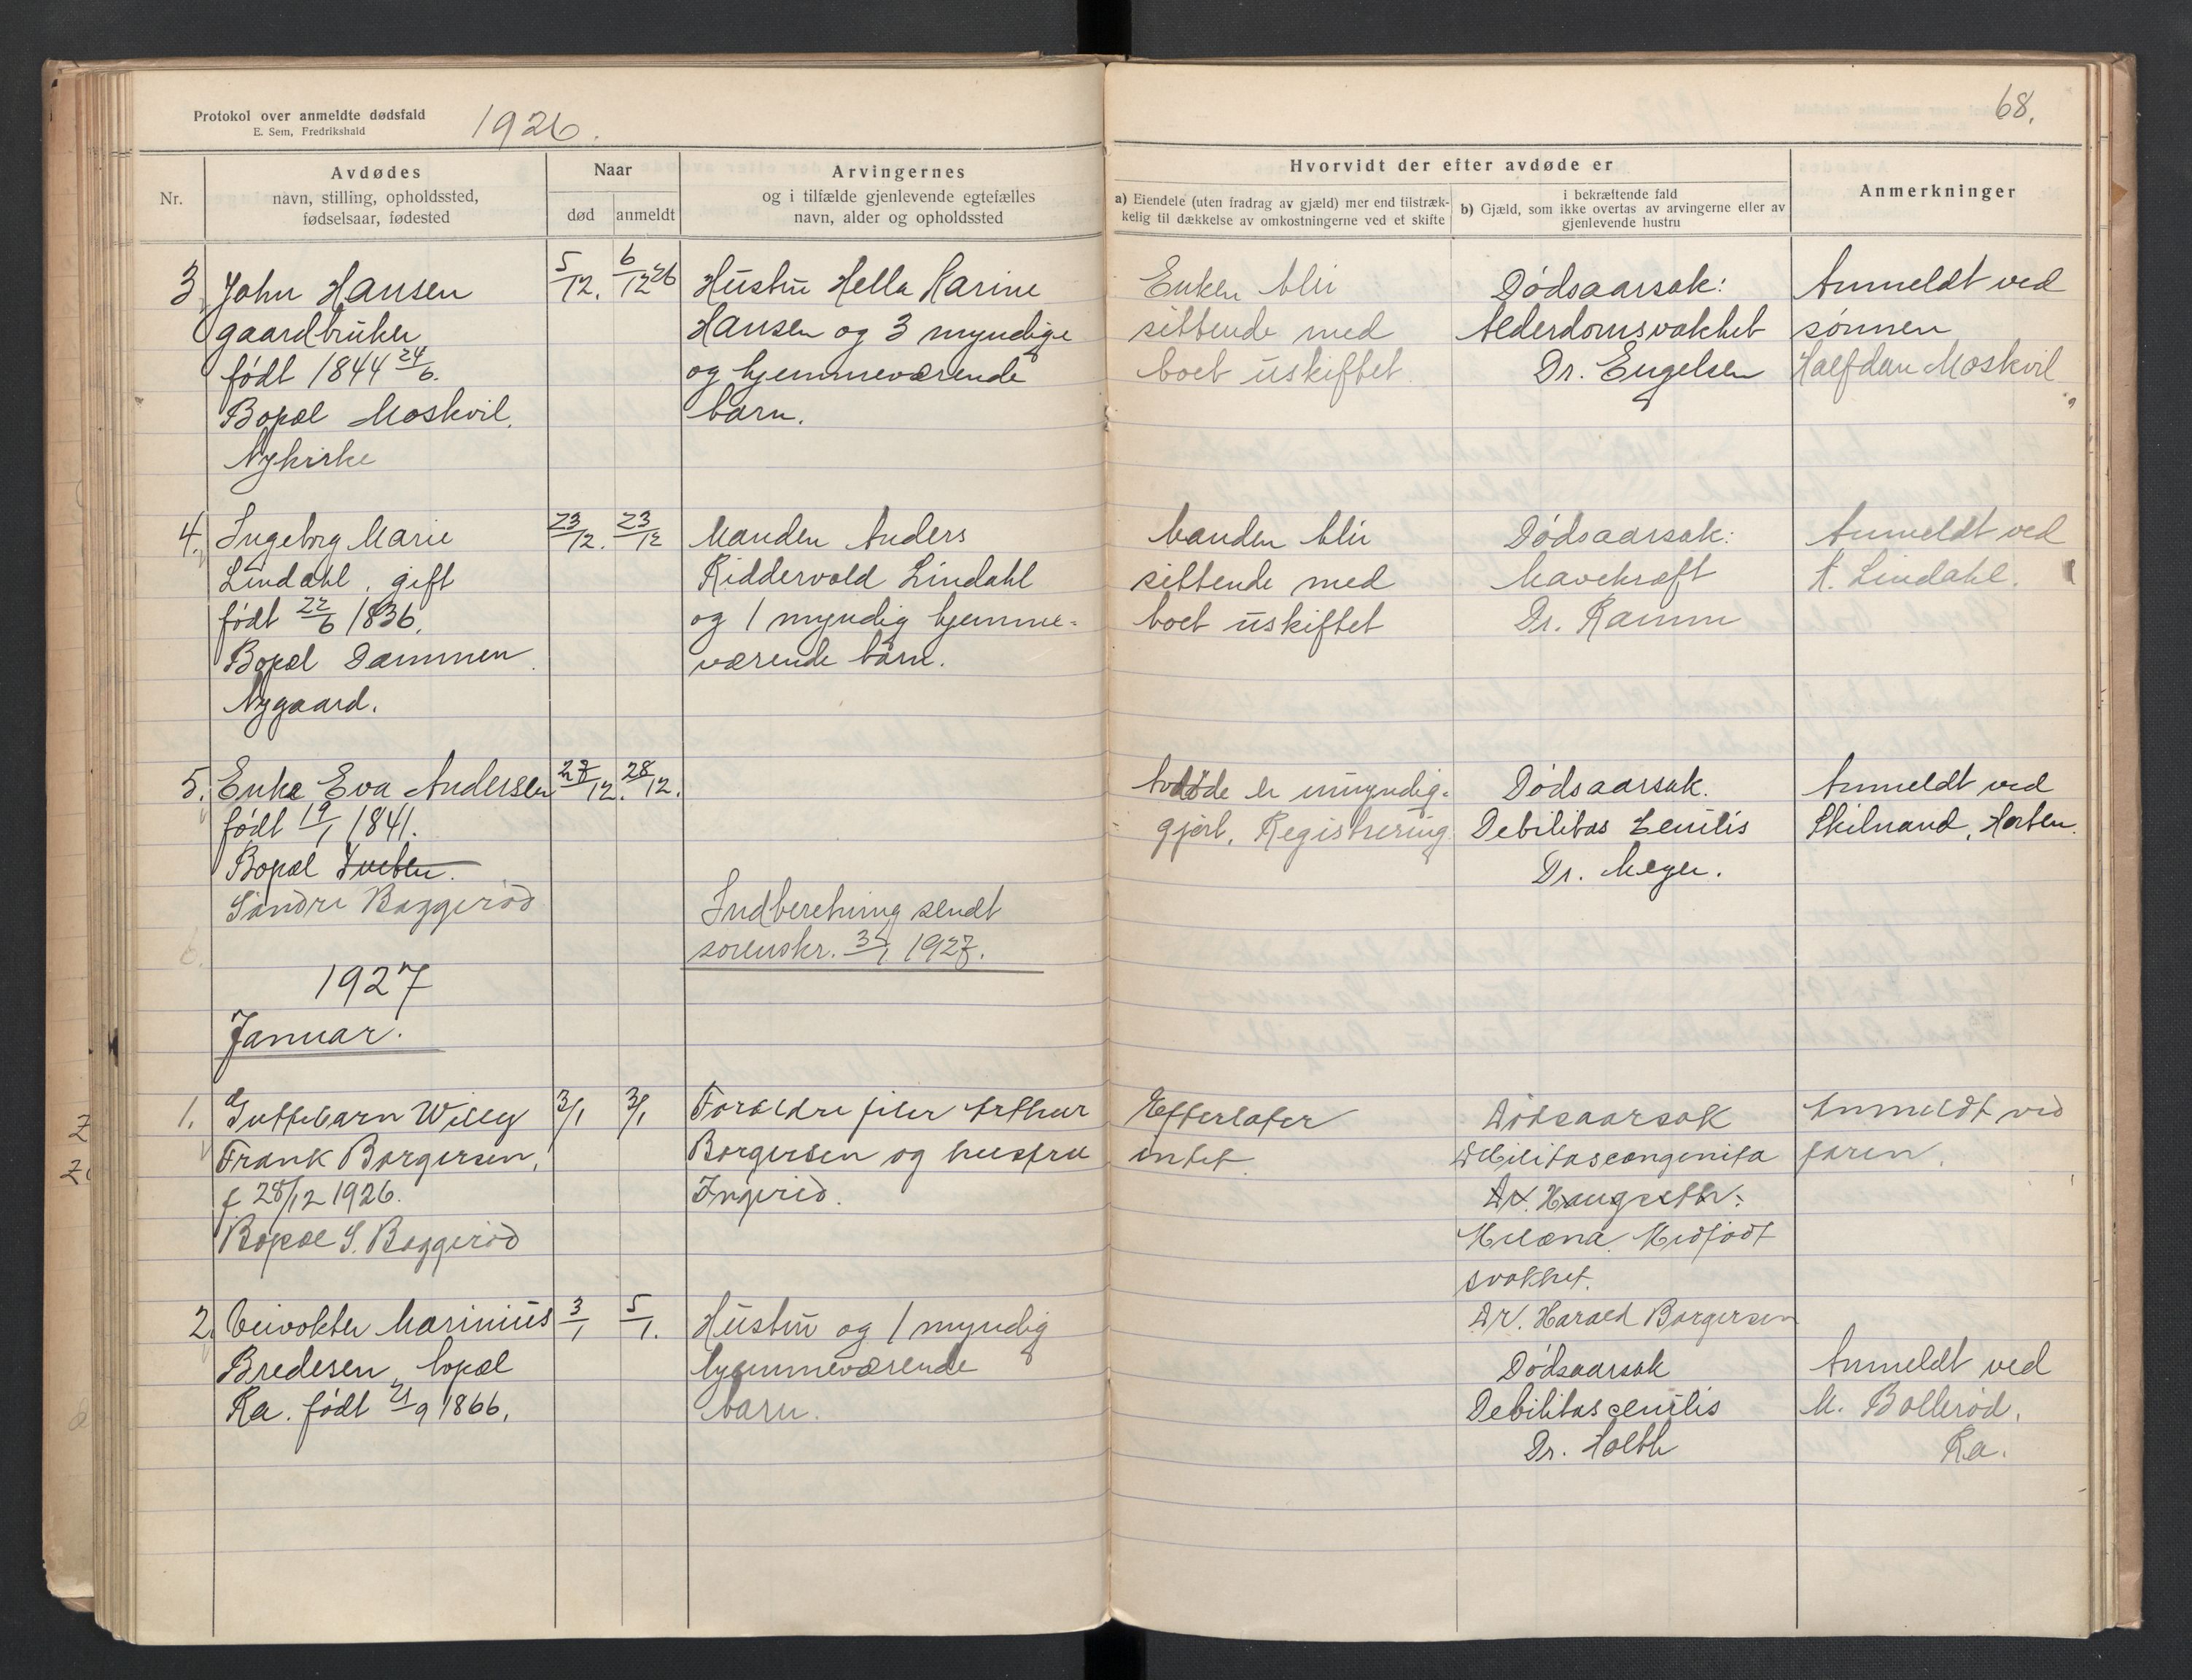 Protokol over anmeldte dødsfald
E. Sem, Fredrikshald
1926.
68.
Nr.
Avdødes
navn, stilling, opholdssted,
fødselsaar, fødested
Naar
død
anmeldt
Arvingernes
og i tilfælde gjenlevende egtefælles
navn, alder og opholdssted
Hvorvidt der efter avdøde er
a) Eiendele (uten fradrag av gjæld) mer end tilstræk-
kelig til dækkelse av omkostningerne ved et skifte
i bekræftende fald
b) Gjæld, som ikke overtas av arvingerne eller av
gjenlevende hustru
Anmerkninger
3
John Hansen
gaardbruker
født 1844 24/6.
Bopæl Moskvil.
Nykirke
5/12.
6/12 26
Hustru Hella Karine
Hansen og 3 myndige
og hjemmeværende
barn.
Enken blir
sittende med
boet uskiftet.
Dødsaarsak:
Alderdomsvakhet
Dr. Engelsen
Anmeldt ved
sønnen
Halfdan Moskvil
4.
Ingeborg Marie
Lindahl, gift
født 22/6 1836.
Bopæl Dammen
Nygaard.
23/12.
23/12
Manden Anders
Riddervold Lindahl
og 1 myndig hjemme-
værende barn.
Manden blir
sittende med
boet uskiftet
Dødsaarsak:
Mavekræft
Dr. Ramm
Anmeldt ved
A. Lindahl.
5.
Enke Eva Andersen
født 19/1 1841.
Bopæl
Søndre Baggerød
27/12.
28/12.
Avdøde er umyndig-
gjort. Registrering
Dødsaarsak.
Debilitas senilis
Dr. Meyer.
Anmeldt ved
Skilnand, Horten.
Indberetning sendt
sorenskr. 3/1 1927.
6.
1927
Januar.
1.
Guttebarn Willy
Frank Borgersen,
f 28/12 1926.
Bopæl S. Baggerød
3/1
3/1
Foreldre filer Arthur
Borgersen og hustru
Ingrid.
Efterlater
intet.
Dødsaarsak
Debilitas congenita
Dr. Haugesthr:
Melæna. Medfødt
svakhet.
Dr. Harald Borgersen
Anmeldt ved
faren.
2.
Veivokter Marinius
Bredesen, bopæl
Ra. født 21/9 1866.
3/1
5/1.
Hustru og 1 myndig
hjemmeværende
barn.
Dødsaarsak
Debilitas senilis
Dr. Holth
Anmeldt ved
M. Bollerød.
Ra.